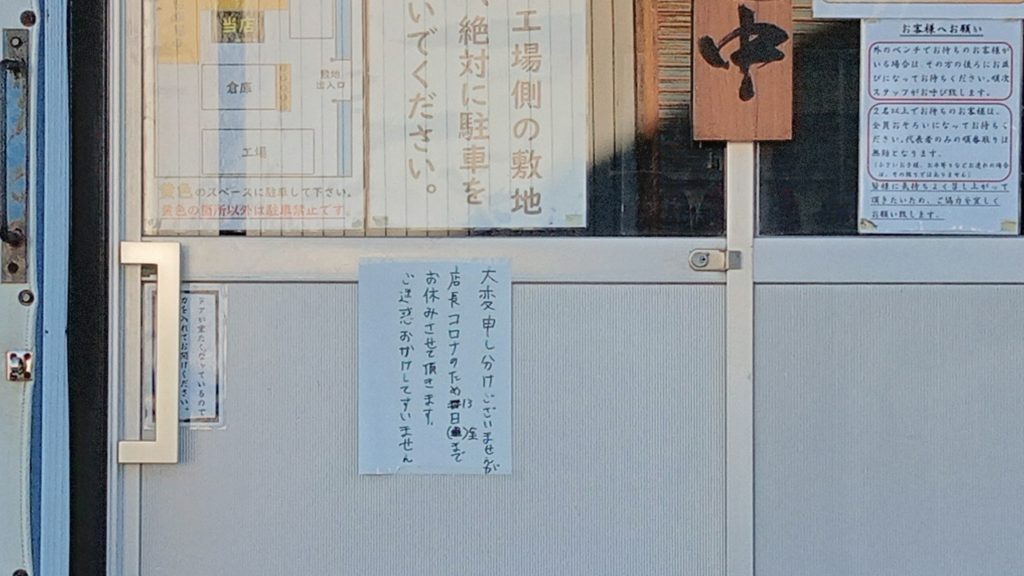 当店
倉庫
敷地
出入口
工場
黄色のスペースに駐車して下さい。
黄色の箇所以外は駐車禁止です。
工場側の敷地
絶対に駐車を
いでください。
中
お客様へお願い
外のベンチでお待ちのお客様が
いる場合は、その方の後ろにお並
びになってお待ちください。順次
スタッフがお呼び致します。
2名以上でお待ちのお客様は、
全員おそろいになってお待ちく
ださい。代表者のみの順番取りは
無効となります。
は、その限りではありません)
皆様に気持ちよく召し上がって
頂きたいため、ご協力を宜しく
お願い致します。
大変申し分けございませんが
店長コロナのため13日(金)まで
お休みさせて頂きます。
ご迷惑おかけしてすいません
ドアが重たくなっているので
力を入れてお開けください。